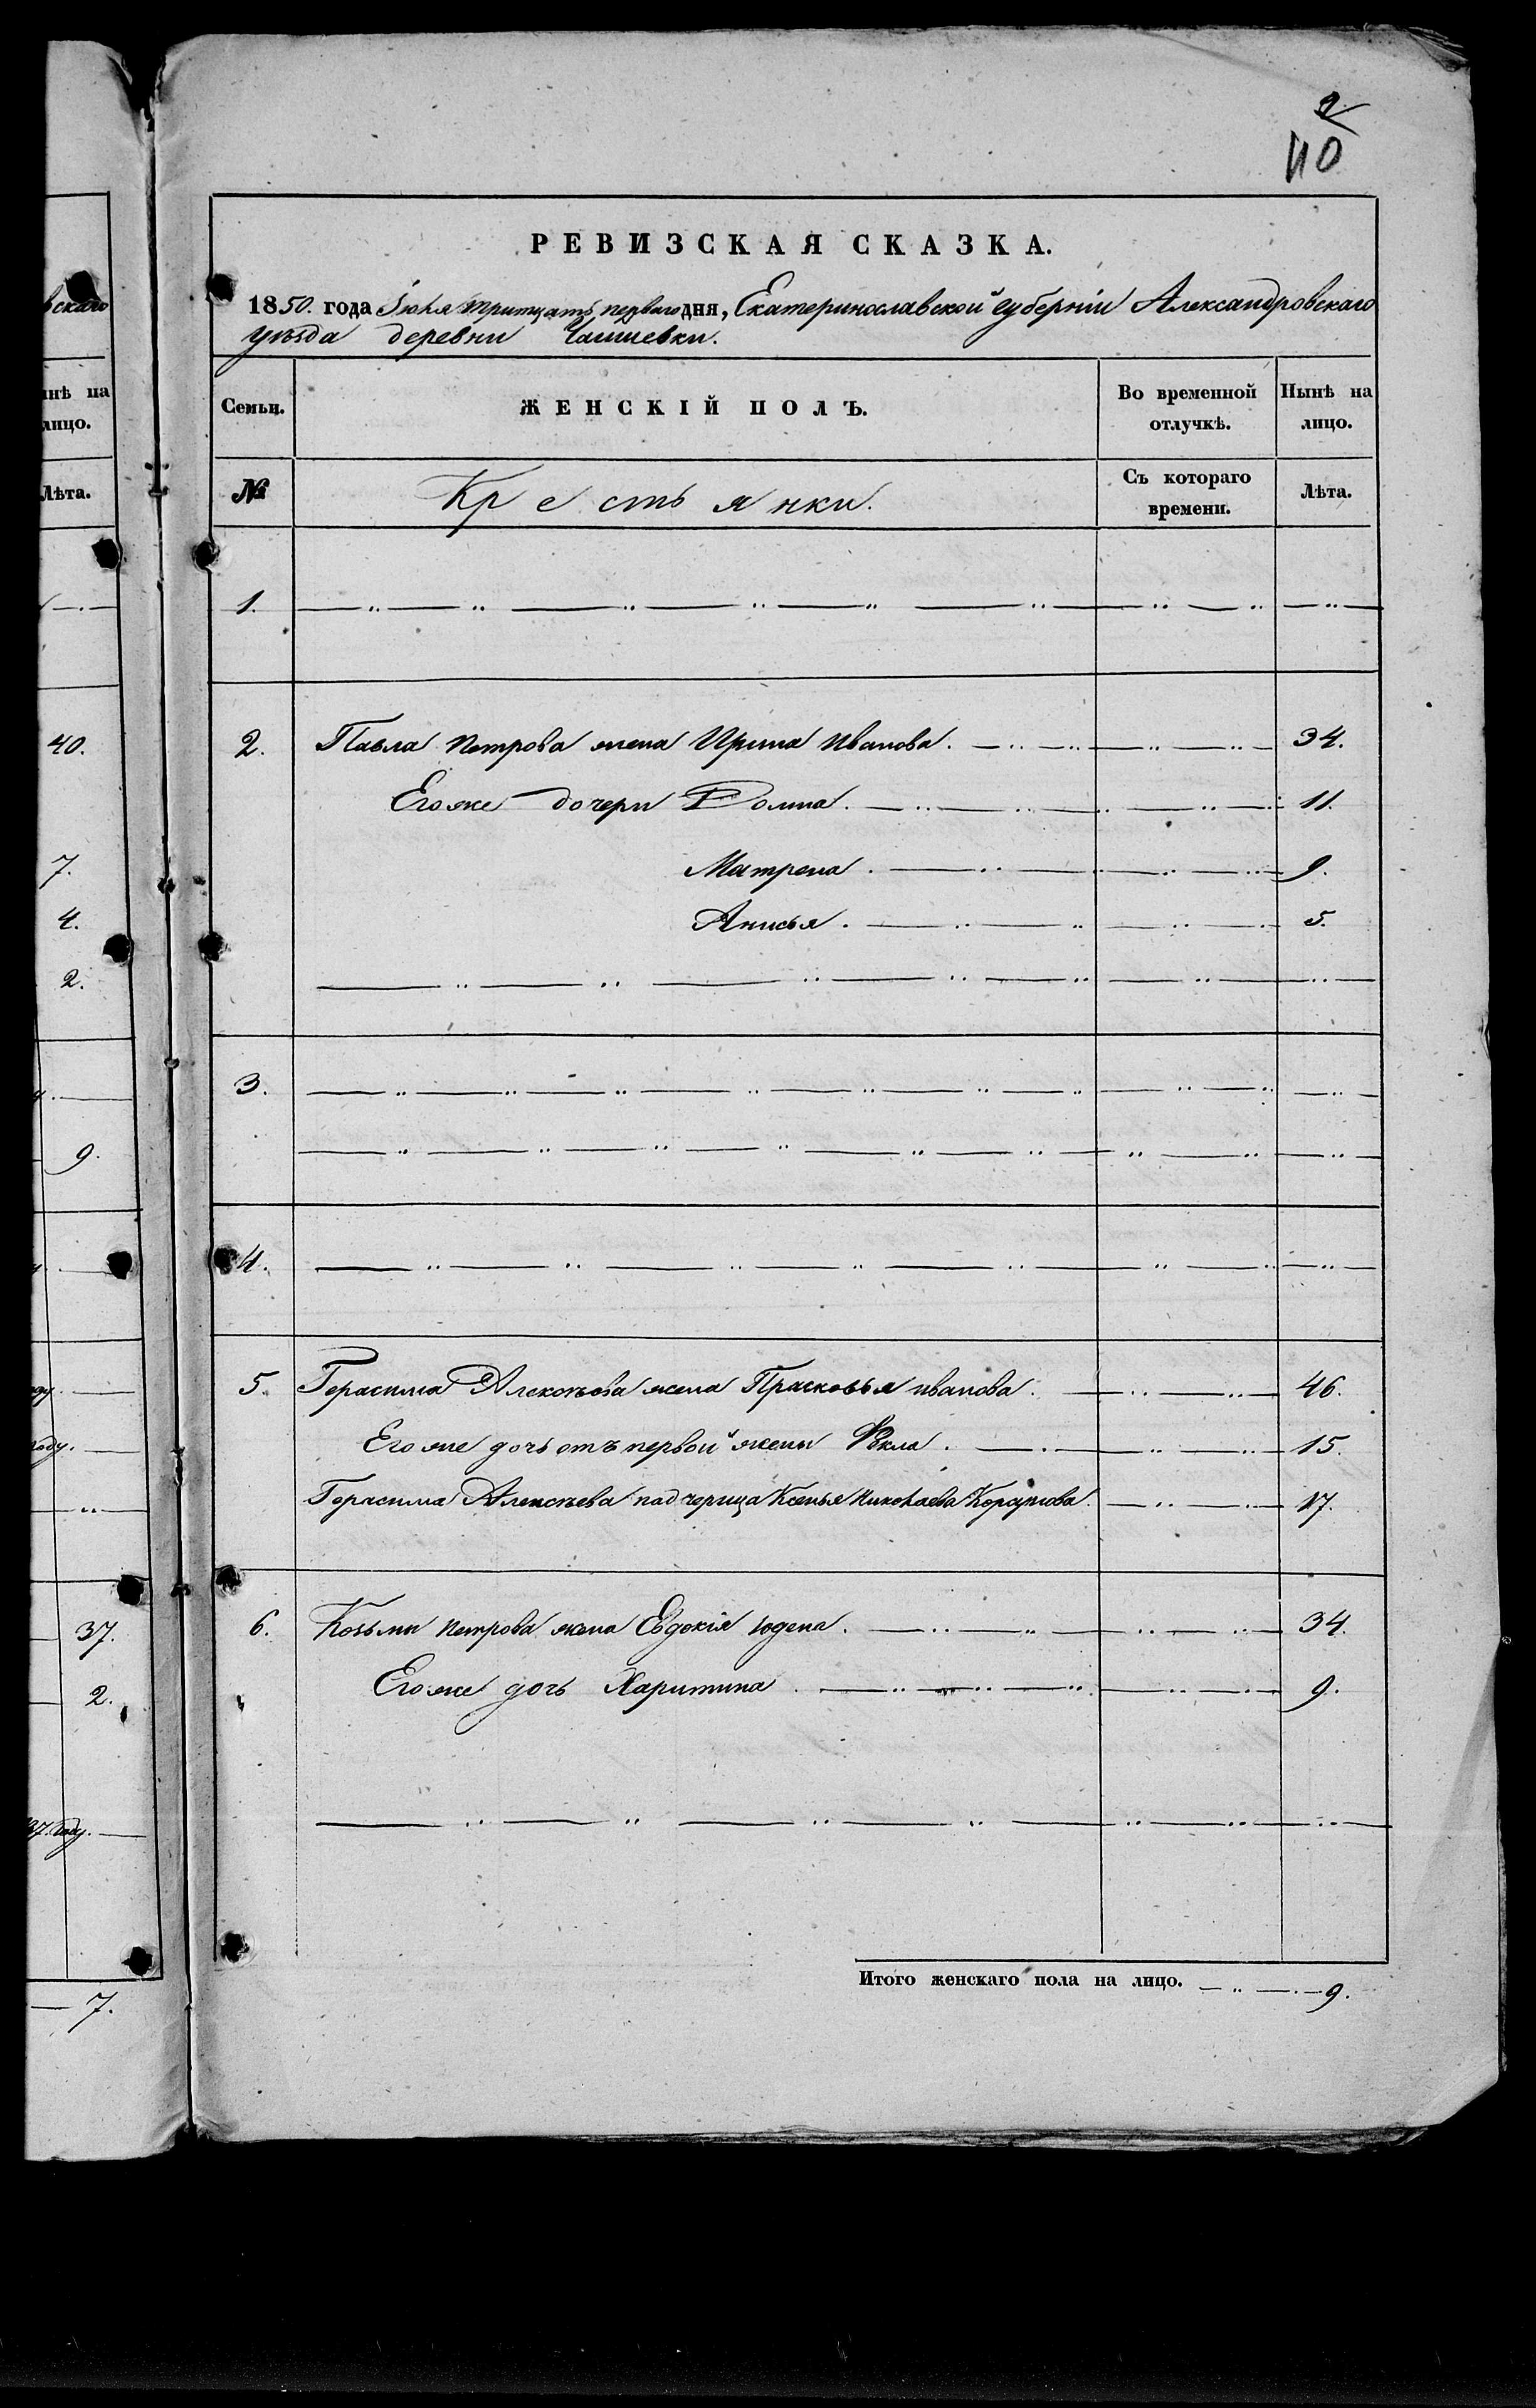 2
110
РЕВИЗСКАЯ СКАЗКА.
1850. года Іюля тритцать перваго дня, Екатеринославской губерніи Александровскаго
уѣзда деревни
Семьи.
ЖЕНСКІЙ ПОЛЪ.
Во временной отлучкѣ.
Нынѣ на лицо.
№
Крестьянки.
Съ котораго времени.
Лѣта.
1.
2. Павла Петрова жена Ирина Иванова. 34.
Егоже дочери Домна. 11.
Матрена. 9.
Анисья. 5.
3.
4.
5. Герасима Алексѣева жена Прасковья иванова. 46.
Егоже дочь отъ первой жены Ѳекла. 15.
Герасима Алексѣева падчерица Ксенья Николаева 17.
6. Козьмы Петрова жена Евдокія 34.
Егоже дочь Харитина 9.
Итого женскаго пола на лицо. 9.
вскаго
нѣ на
лицо.
Лѣта.
40.
7.
4.
2.
9.
году.
37.
2.
37. году.
7.